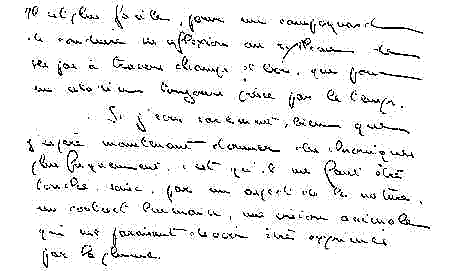 Il est plus facile, pour un campagnard
de conduire sa réflexion au rythme de
ses pas à travers champs et bois, que pour
un citadin toujours pressé par le temps.
Si j'écris rarement, bien que
j'espère maintenant donner des chroniques
plus fréquemment, c'est qu'il me faut être
touché, saisi, par un aspect de la nature,
un contact humain, une vision animale
qui me paraissent devoir être exprimés
par la plume.